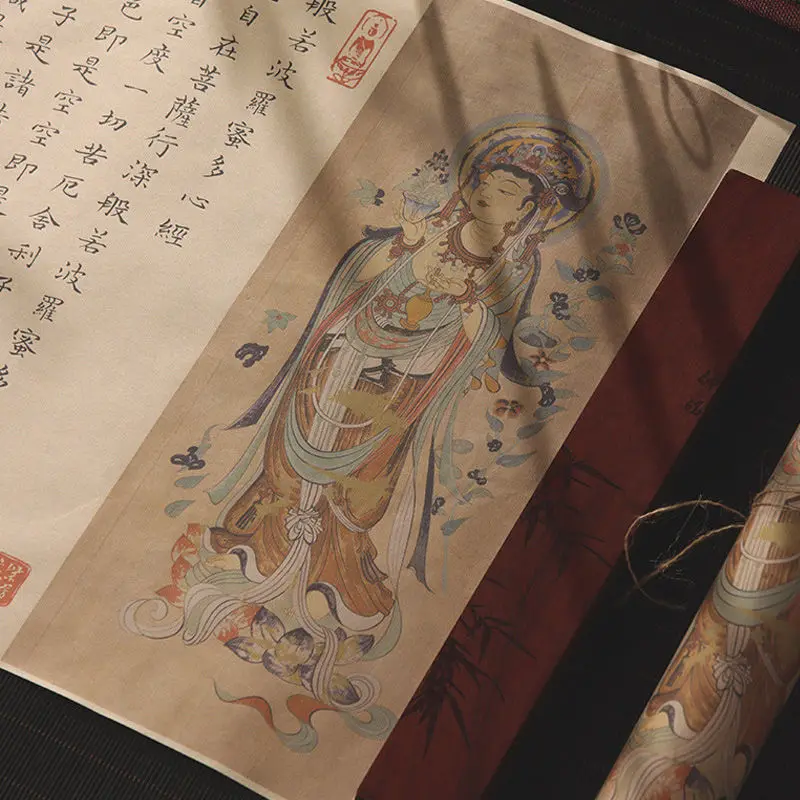 般若波羅蜜多心經
自在菩薩行深般若波羅蜜多
皆空度一切苦厄舍利子
色即是空空即是
子是諸